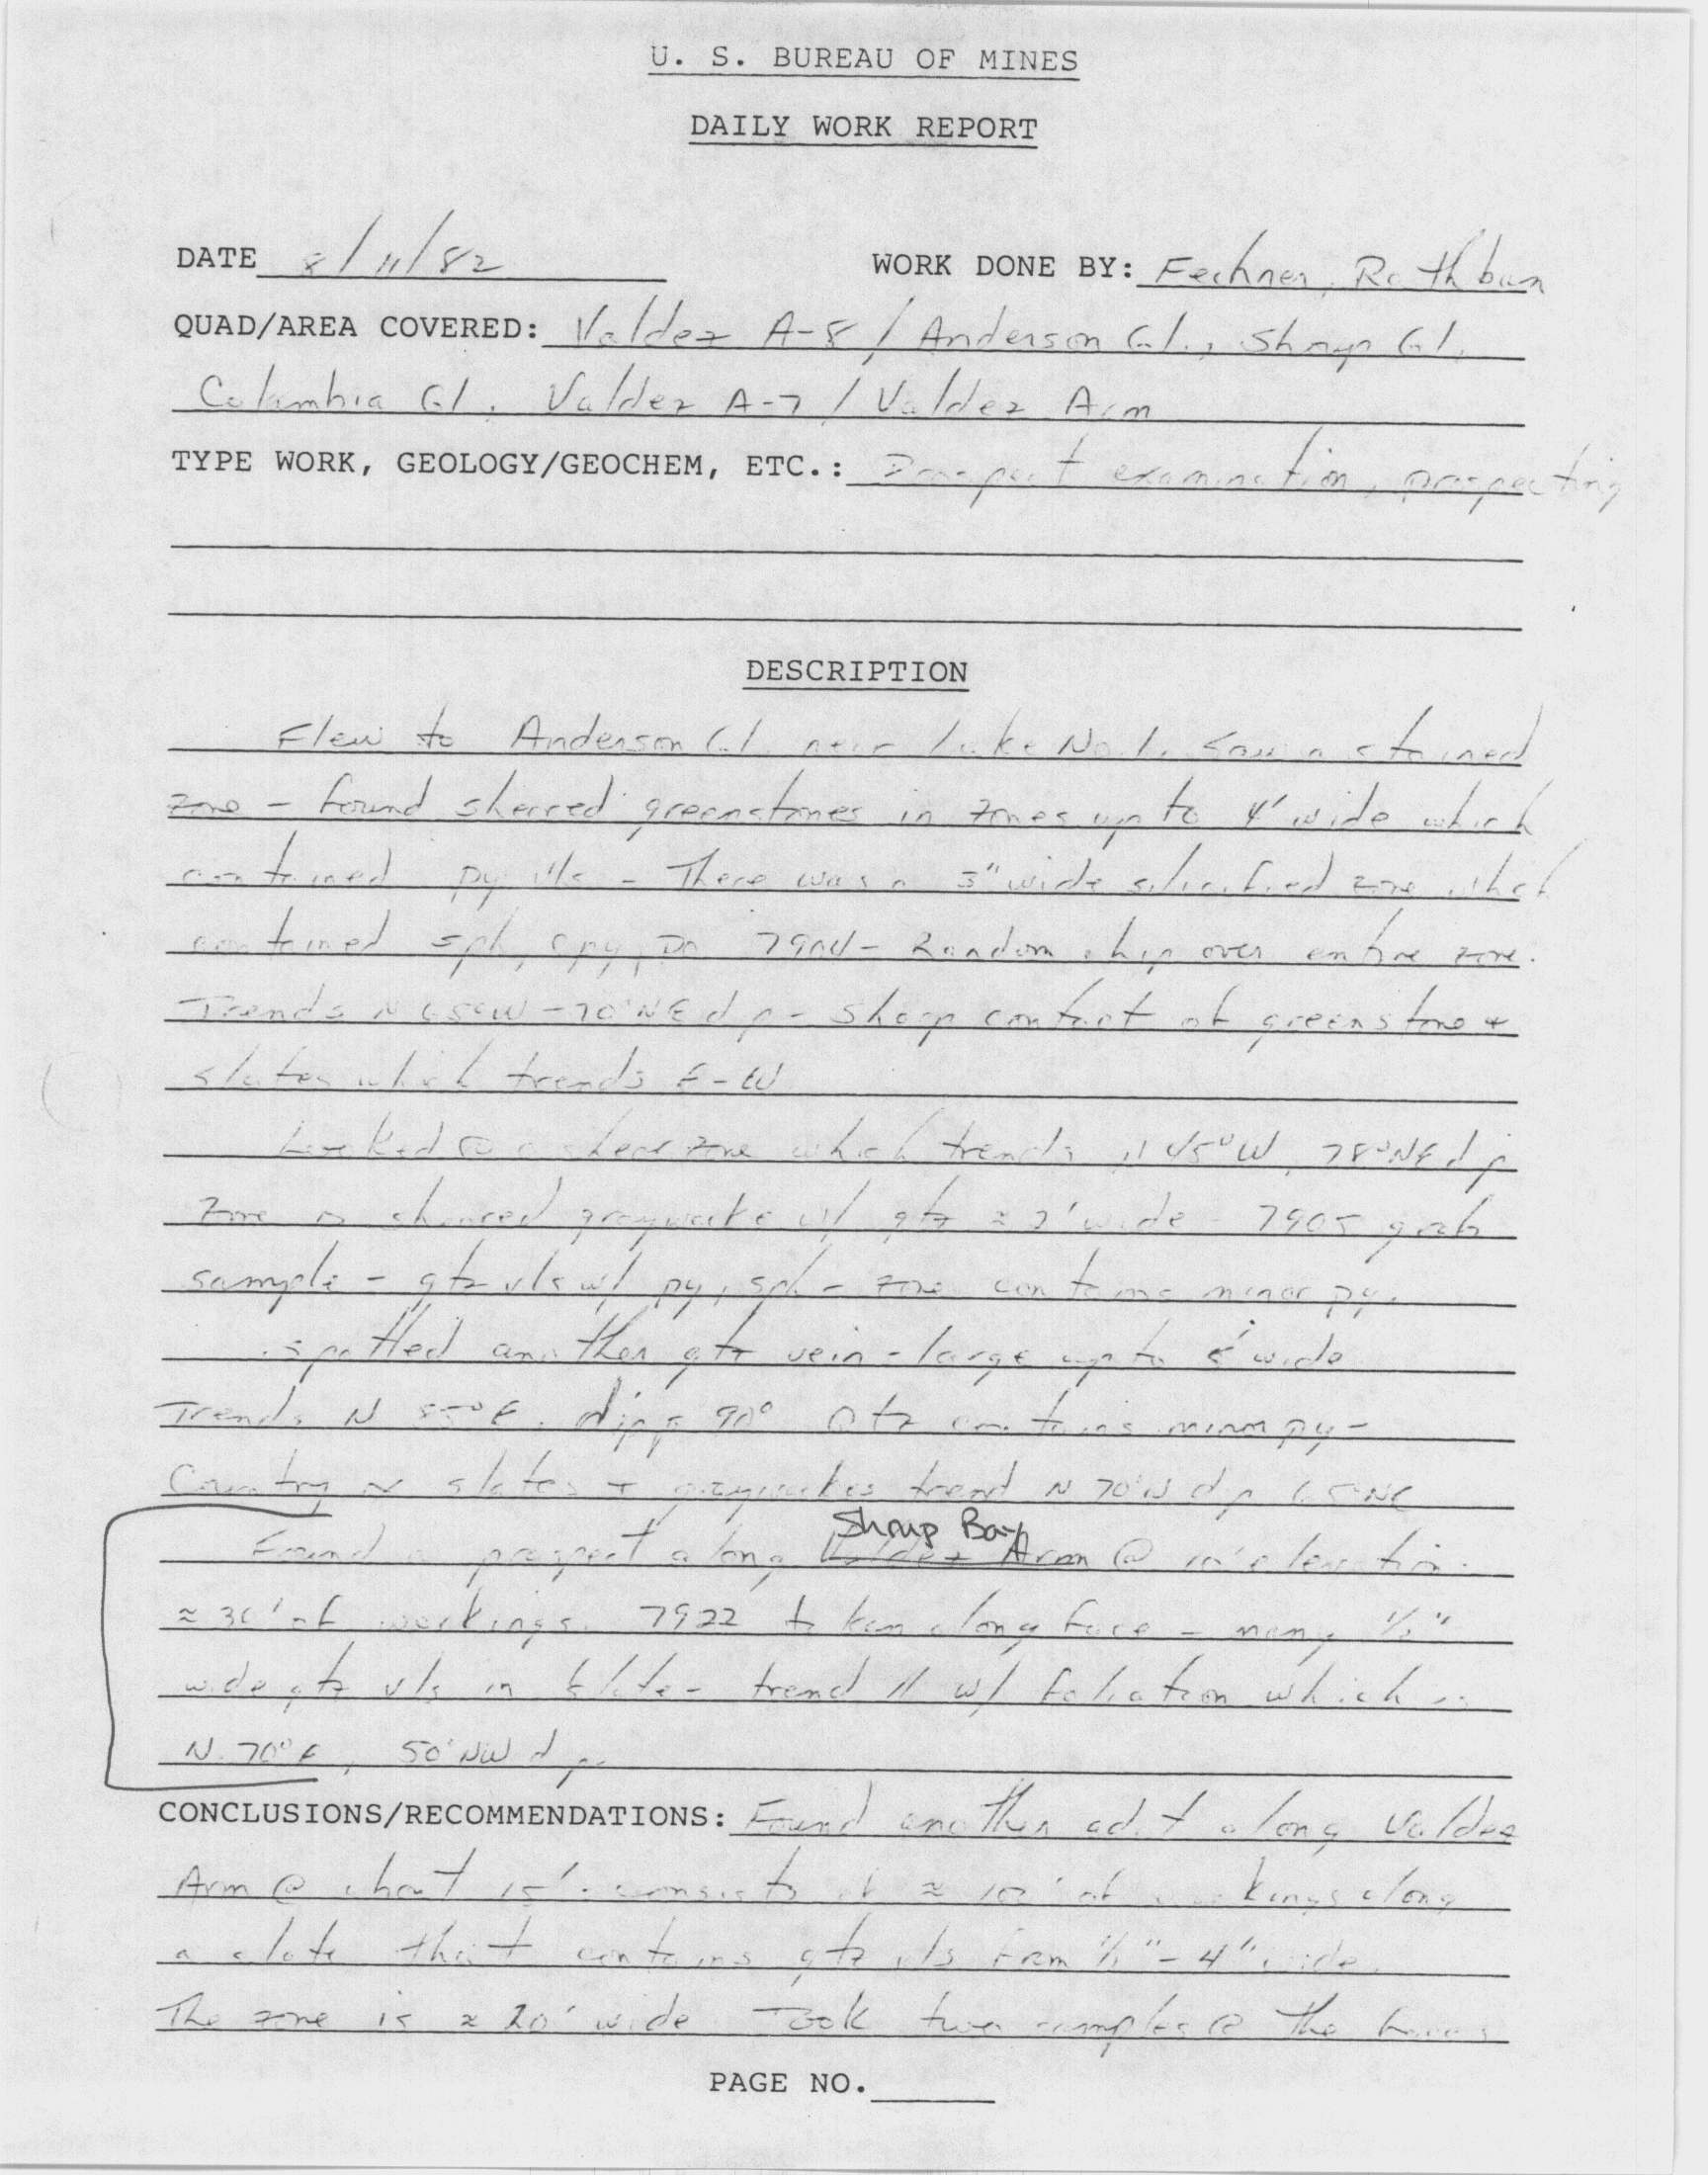 U. S. BUREAU OF MINES
DAILY WORK REPORT
DATE 8/11/82 WORK DONE BY: Fechner, Rathbun
QUAD/AREA COVERED: Valdez A-8 / Anderson Gl., Shoup Gl.
Columbia Gl. Valdez A-7 / Valdez Arm
TYPE WORK, GEOLOGY/GEOCHEM, ETC.: Prospect examination, prospecting
DESCRIPTION
Flew to Anderson Gl. near Lake No. 1. Saw a stained
zone - found sheared greenstones in zones up to 4' wide which
contained py vls - There was a 3" wide silicified zone which
contained sph, cpy, po 7904 - Random chip over entire zone.
Trends N 65°W - 70°NE dip - Sharp contact of greenstone +
slates which trends E-W
Looked @ a shear zone which trends N 45°W, 78°NE dip
zone is sheared graywacke w/ qtz ≈ 2' wide - 7905 grab
sample - qtz vls w/ py, sph - zone contains minor py.
spotted another qtz vein - large up to 5' wide
Trends N 85°E. dips 90° Qtz contains minor py -
Country slates + graywackes trend N 70°W dip 65°NE
Shoup Bay
Found a prospect along Valdez Arm @ 10' elevation.
≈ 30' of workings. 7922 taken along face - many 1/2"
wide qtz vls in slate - trend // w/ foliation which is
N. 70°E, 50°NW dip.
CONCLUSIONS/RECOMMENDATIONS: Found another adit along Valdez
Arm @ about 15' - consists of ≈ 100' of workings along
a slate that contains qtz vls from 1/2" - 4" wide.
The zone is ≈ 20' wide Took two samples @ the faces
PAGE NO.